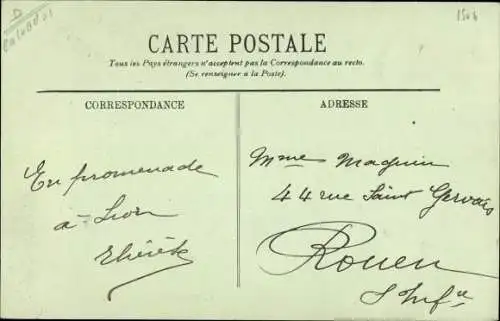 D
Calvados
CARTE POSTALE
Tous les Pays étrangers n'acceptent pas la Correspondance au recto.
(Se renseigner à la Poste).
CORRESPONDANCE
En promenade
à Lion
ADRESSE
Mme Maquin
44 rue Saint Gervais
Rouen
S Infre